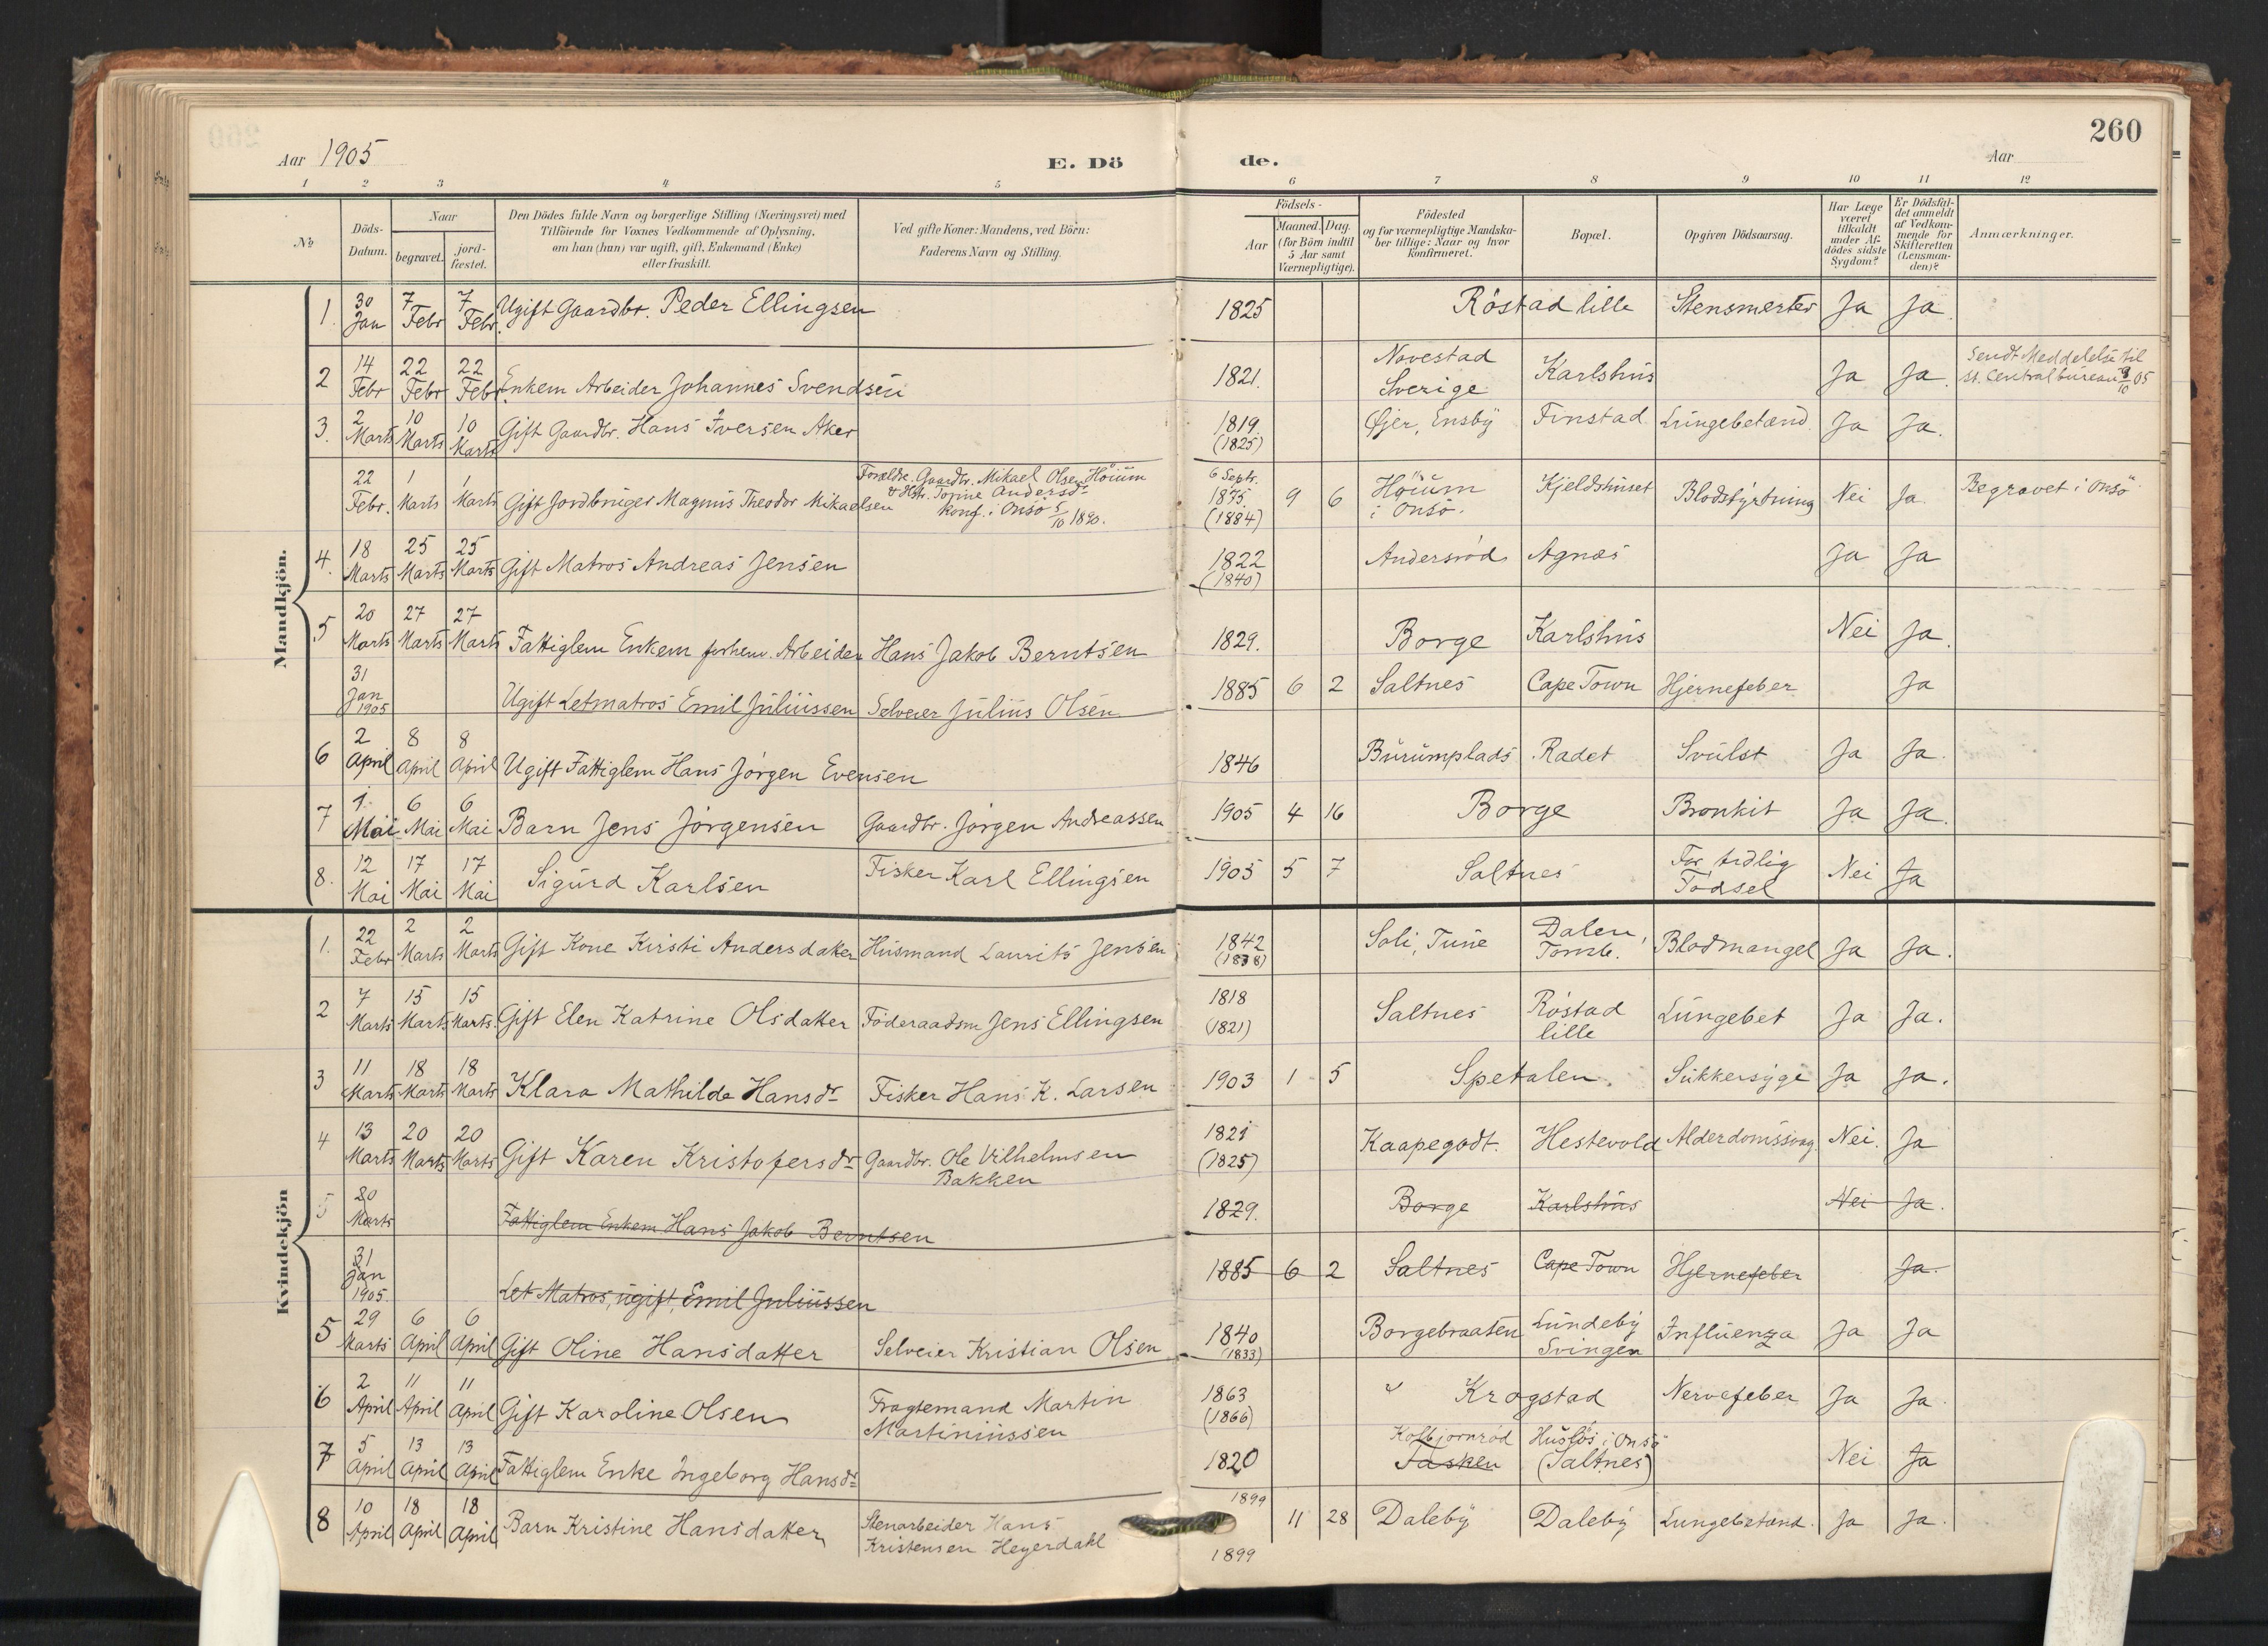 260
Aar 1905
E. Dö
de.
Aar
1 2 3 4 5 6 7 8 9 10 11 12
No
Döds-Datum.
Naar
begravet.
jordfæstet.
Den Dödes fulde Navn og borgerlige Stilling (Næringsvei) med
Tilföiende for Voxnes Vedkommende af Oplysning,
om han (hun) var ugift, gift, Enkemand (Enke)
eller fraskilt.
Ved gifte Koner: Mandens, ved Börn:
Faderens Navn og Stilling.
Födsels-
Aar
Maaned. Dag.
(for Börn indtil
5 Aar samt
Værnepligtige).
Födested
og for værnepligtige Mandska-
ber tillige: Naar og hvor
konfirmeret.
Bopæl.
Opgiven Dödsaarsag.
Har Læge
været
tilkaldt
under Af-
dödes sidste
Sygdom?
Er Dödsfal-
det anmeldt
af Vedkom-
mende for
Skifteretten
(Lensman-
den)?
Anmærkninger.
Mandkjön.
1. 30 Jan 7 Febr 7 Febr. Ugift Gaardbr. Peder Ellingsen 1825 Röstad lille Stensmerter Ja Ja.
2 14 Febr 22 Febr 22 Febr. Enkem Arbeider Johannes Svendsen 1821. Navestad Sverige Karlshus Ja Ja. Sendt Meddelelse til St. Centralbureau 9/10 05
3. 2 Marts 10 Marts 10 Marts Gift Gaardbr. Hans Iversen Aker 1819. (1825) Øjer, Ensby Finstad Lungebetænd. Ja Ja.
22 Febr. 1 Marts 1 Marts Gift Jordbruger Magnus Theodor Mikaelsen Forældre. Gaardbr. Mikael Olsen Höium & Hstr. Tonine Andersdr konf. i Onsö 5/10 1890. 6 Septr. 1875 (1884) 9 6 Höium i Onsö. Kjeldshuset Blodstyrtning Nei Ja. Begravet i Onsö
4. 18 Marts 25 Marts 25 Marts Gift Matros Andreas Jensen 1822 (1840) Andersröd Agnæs Ja Ja
5 20 Marts 27 Marts 27 Marts Fattiglem Enkem forhenv. Arbeider Hans Jakob Berntsen 1829. Borge Karlshus Nei Ja.
31 Jan 1905 Ugift Letmatros Emil Juliussen Selveier Julius Olsen 1885 6 2 Saltnes Cape Town Hjernefeber Ja
6 2 April 8 April 8 April Ugift Fattiglem Hans Jörgen Evensen 1846 Burumplads Radet Svulst Ja Ja.
7 1. Mai 6 Mai 6 Mai Barn Jens Jörgensen Gaardbr. Jörgen Andreassen 1905 4 16 Borge Bronkit Ja Ja.
8. 12 Mai 17 Mai 17 Mai Sigurd Karlsen Fisker Karl Ellingsen 1905 5 7 Saltnes For tidlig Födsel Nei Ja
Kvindekjön
1. 22 Febr 2 Marts 2 Marts Gift Kone Kirsti Andersdatter Husmand Laurits Jensen 1842 (1838) Soli, Tune Dalen, Tomb. Blodmangel Ja Ja.
2 7 Marts 15 Marts 15 Marts. Gift Elen Katrine Olsdatter Föderaadsm Jens Ellingsen 1818 (1821) Saltnes Röstad lille Lungebet Ja Ja.
3 11 Marts 18 Marts 18 Marts Klara Mathilde Hansdr Fisker Hans K. Larsen 1903 1 5 Spetalen. Sukkersyge Ja Ja.
4 13 Marts 20 Marts 20 Marts Gift Karen Kristofersdr Gaardbr. Ole Vilhelmsen Bakken 1821 (1825) Kaapegodt. Hestevold Alderdomssvag. Nei. Ja
5 20 Marts Fattiglem Enkem Hans Jakob Berntsen 1829. Borge Karlshus Nei Ja.
31 Jan 1905. Let Matros, ugift, Emil Juliussen 1885 6 2 Saltnes Cape Town Hjernefeber Ja.
5 29 Marts 6 April 6 April Gift Oline Hansdatter Selveier Kristian Olsen 1840 (1833) Borgebraaten Lundeby Svingen Influenza Ja Ja
6 2 April 11 April 11 April Gift Karoline Olsen Fragtemand Martin Martiniussen 1863 (1866) Krogstad Nervefeber Ja Ja.
7 5 April 13 April 13 April Fattiglem Enke Ingeborg Hansdr 1820 Kolbjörnröd Tasken Huslös i Onsö (Saltnes) Nei Ja
8 10 April 18 April 18 April Barn Kristine Hansdatter Stenarbeider Hans Kristensen Heyerdahl 1899 11 28 Daleby Daleby Lungebetænd. Ja Ja.
1899